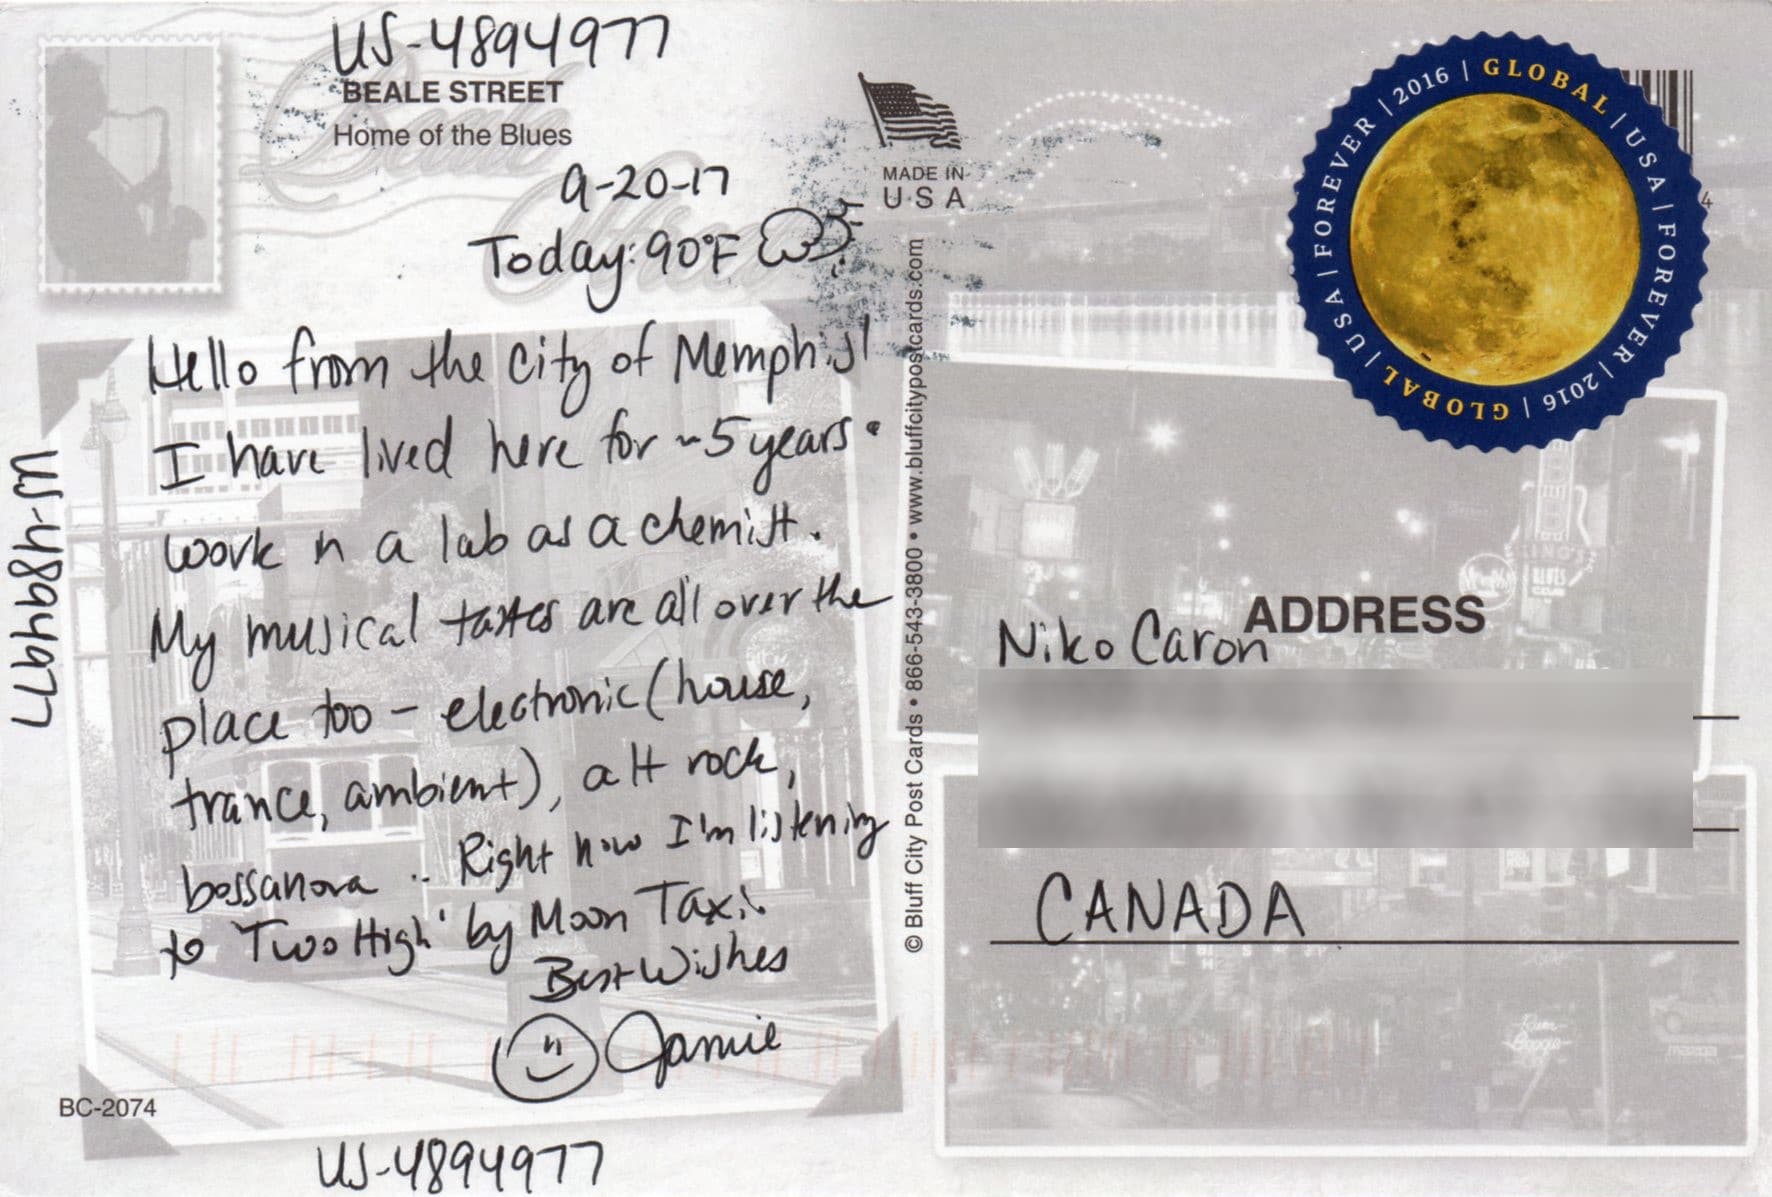 US-4894977
BEALE STREET
Home of the Blues
9-20-17
Today: 90°F
Hello from the city of Memphis!
I have lived here for ~5 years.
work in a lab as a chemist.
My musical tastes are all over the
place too - electronic (house,
trance, ambient), alt rock,
bossanova .. Right now I'm listening
to 'Two High' by Moon Taxi.
Best Wishes
Jamie
US-4894977
US-4894977
BC-2074
MADE IN
USA
© Bluff City Post Cards • 866-543-3800 • www.bluffcitypostcards.com
GLOBAL | USA | FOREVER | 2016 | GLOBAL | USA | FOREVER | 2016 |
4
ADDRESS
Niko Caron
CANADA